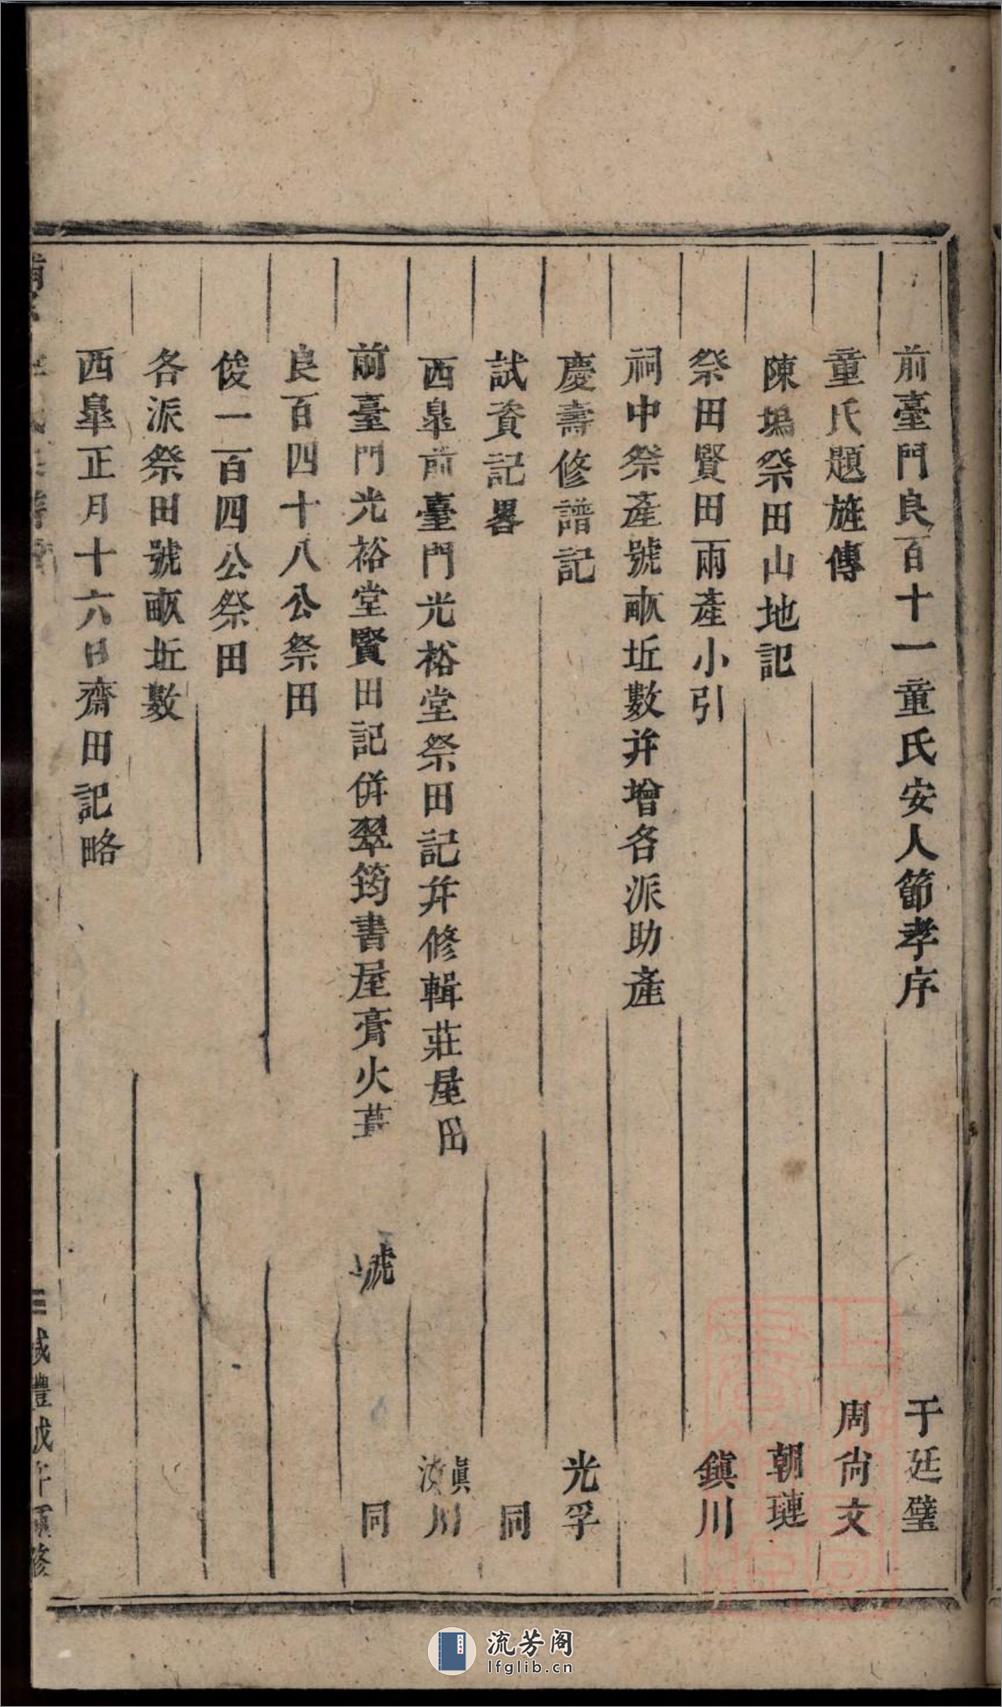 前臺門良百十一童氏安人節孝序 于廷璧
童氏題旌傳 周尙文
陳塢祭田山地記 朝璉
祭田賢田兩產小引 鎭川
祠中祭產號畝坵數并增各派助產
慶壽修譜記 光孚
試資記畧 同
西臯前臺門光裕堂祭田記并修輯莊屋田 川
前臺門光裕堂賢田記併翠筠書屋膏火 號 同
良百四十八公祭田
俊一百四公祭田
各派祭田號畝坵數
西臯正月十六日齋田記略
三 咸豐戊午重修
流芳阁
lfglib.cn